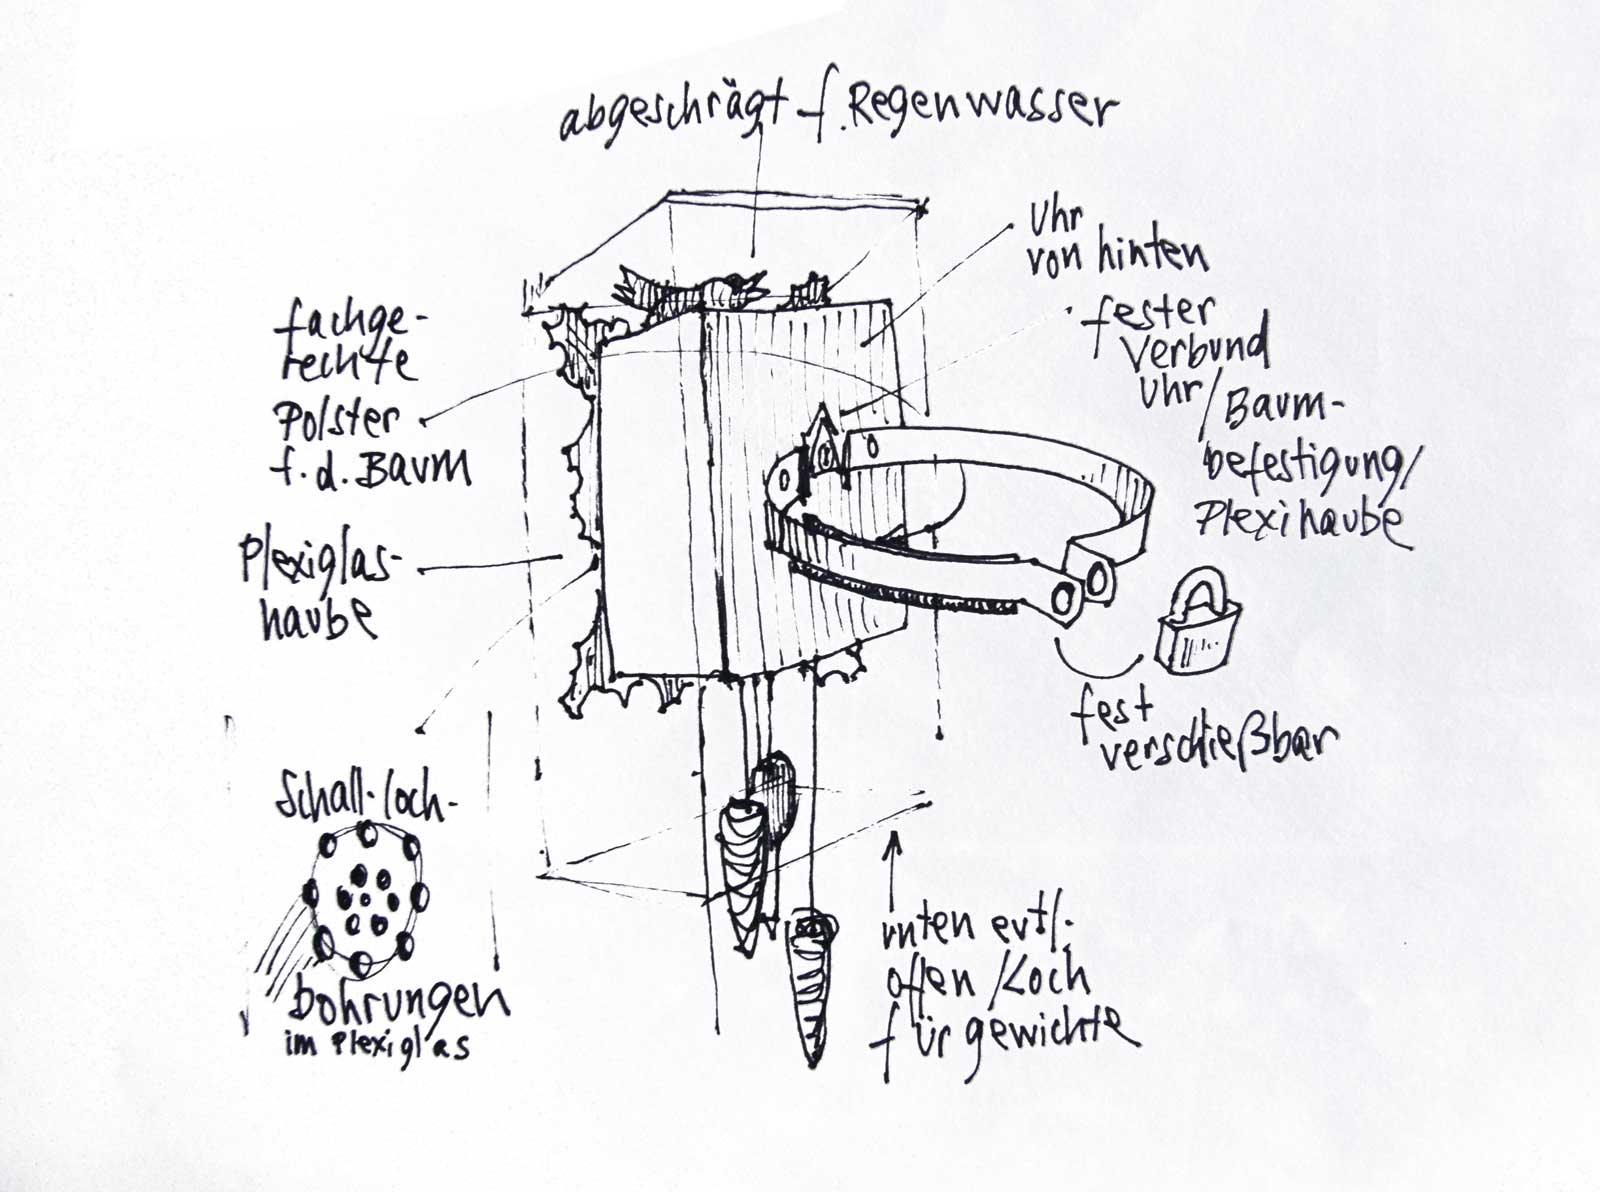 abgeschrägt f. Regenwasser
Uhr
von hinten
fester
Verbund
Uhr/Baum-
befestigung/
Plexihaube
fachge-
rechte
Polster
f. d. Baum
Plexiglas-
haube
fest
verschließbar
Schall-loch-
bohrungen
im Plexiglas
unten evtl.
offen/Loch
für gewichte